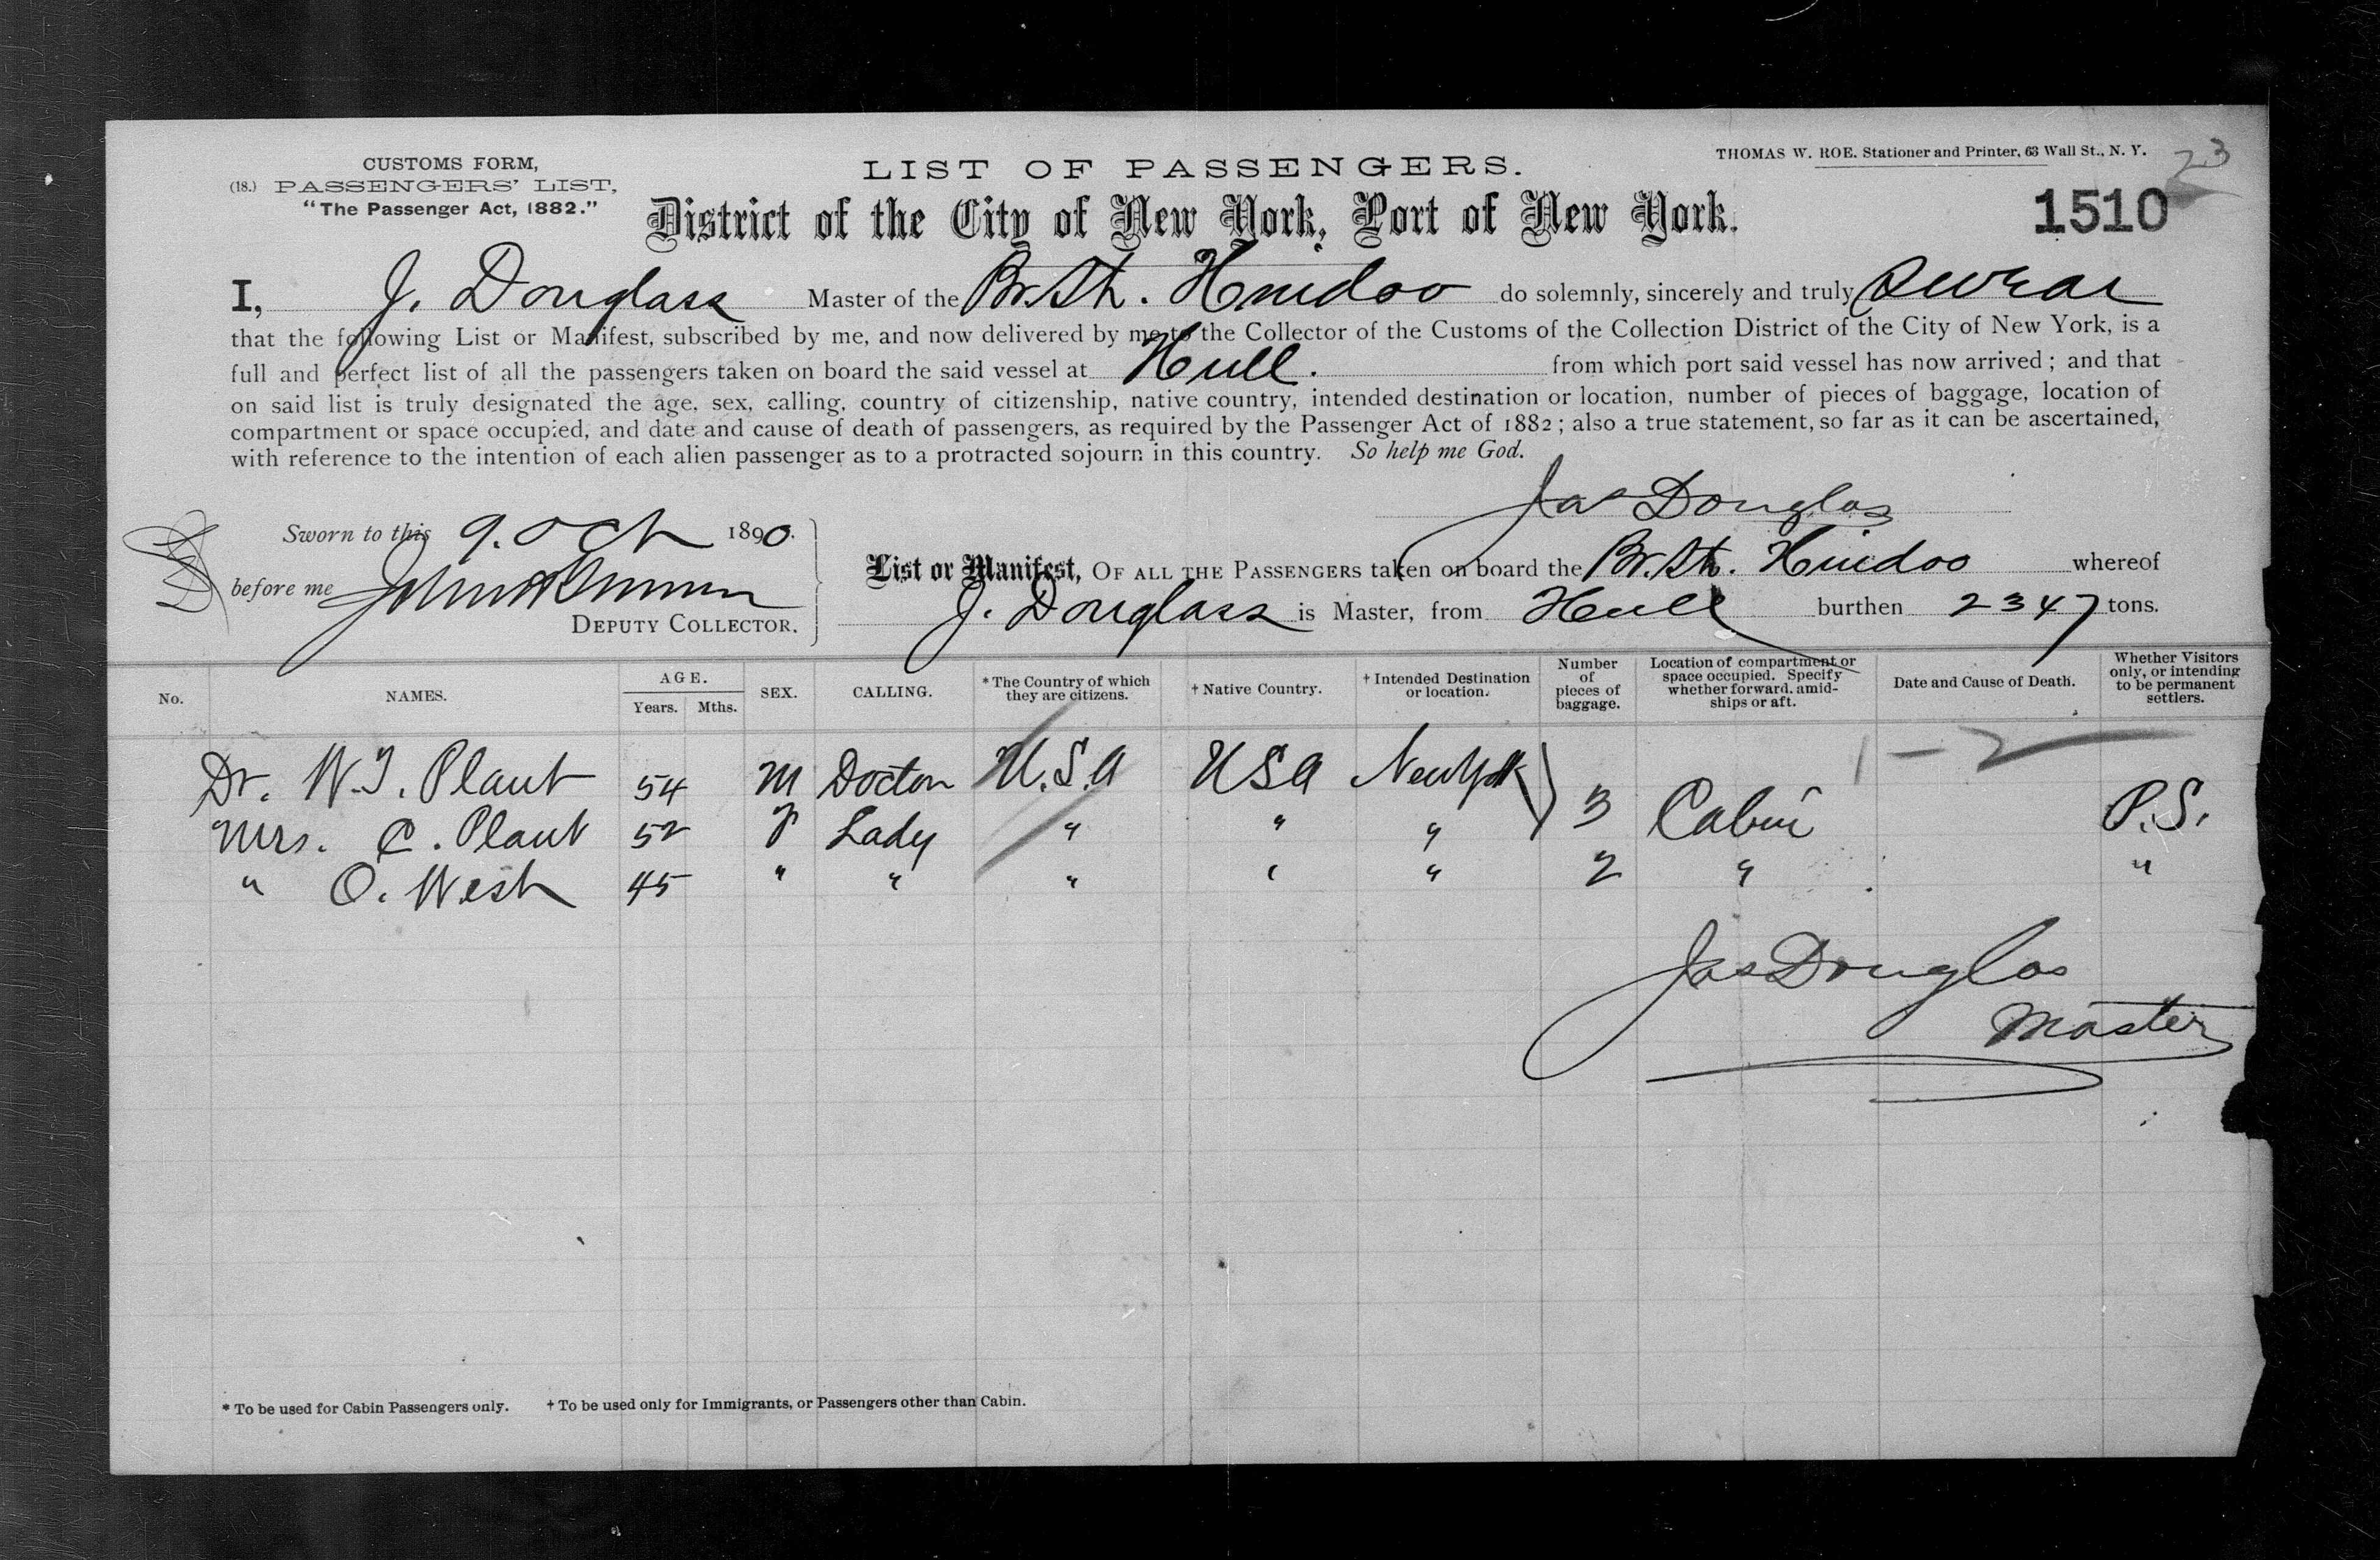 CUSTOMS FORM,
(18.) PASSENGERS' LIST,
"The Passenger Act, 1882."
LIST OF PASSENGERS.
THOMAS W. ROE. Stationer and Printer, 63 Wall St., N. Y.
23
District of the City of New York, Port of New York.
1510
I, J. Douglass Master of the Br. Str. Hindoo do solemnly, sincerely and truly swear
that the following List or Manifest, subscribed by me, and now delivered by me to the Collector of the Customs of the Collection District of the City of New York, is a
full and perfect list of all the passengers taken on board the said vessel at Hull. from which port said vessel has now arrived; and that
on said list is truly designated the age, sex, calling, country of citizenship, native country, intended destination or location, number of pieces of baggage, location of
compartment or space occupied, and date and cause of death of passengers, as required by the Passenger Act of 1882; also a true statement, so far as it can be ascertained,
with reference to the intention of each alien passenger as to a protracted sojourn in this country. So help me God.
Jas Douglas
Sworn to this 9. Oct 1890.
before me
DEPUTY COLLECTOR.
List or Manifest, OF ALL THE PASSENGERS taken on board the Br. Str. Hindoo whereof
J. Douglass is Master, from Hull burthen 2347 tons.
No. NAMES. AGE. Years. Mths. SEX. CALLING. * The Country of which they are citizens. † Native Country. † Intended Destination or location. Number of pieces of baggage. Location of compartment or space occupied. Specify whether forward, amidships or aft. Date and Cause of Death. Whether Visitors only, or intending to be permanent settlers.
1 - 2
Dr. W. T. Plant 54 M Doctor U.S.A USA New York 3 Cabin P.S.
Mrs. C. Plant 52 F Lady " " "
" O. West 45 " " " " " 2 " "
Jas Douglas
Master
* To be used for Cabin Passengers only. † To be used only for Immigrants, or Passengers other than Cabin.